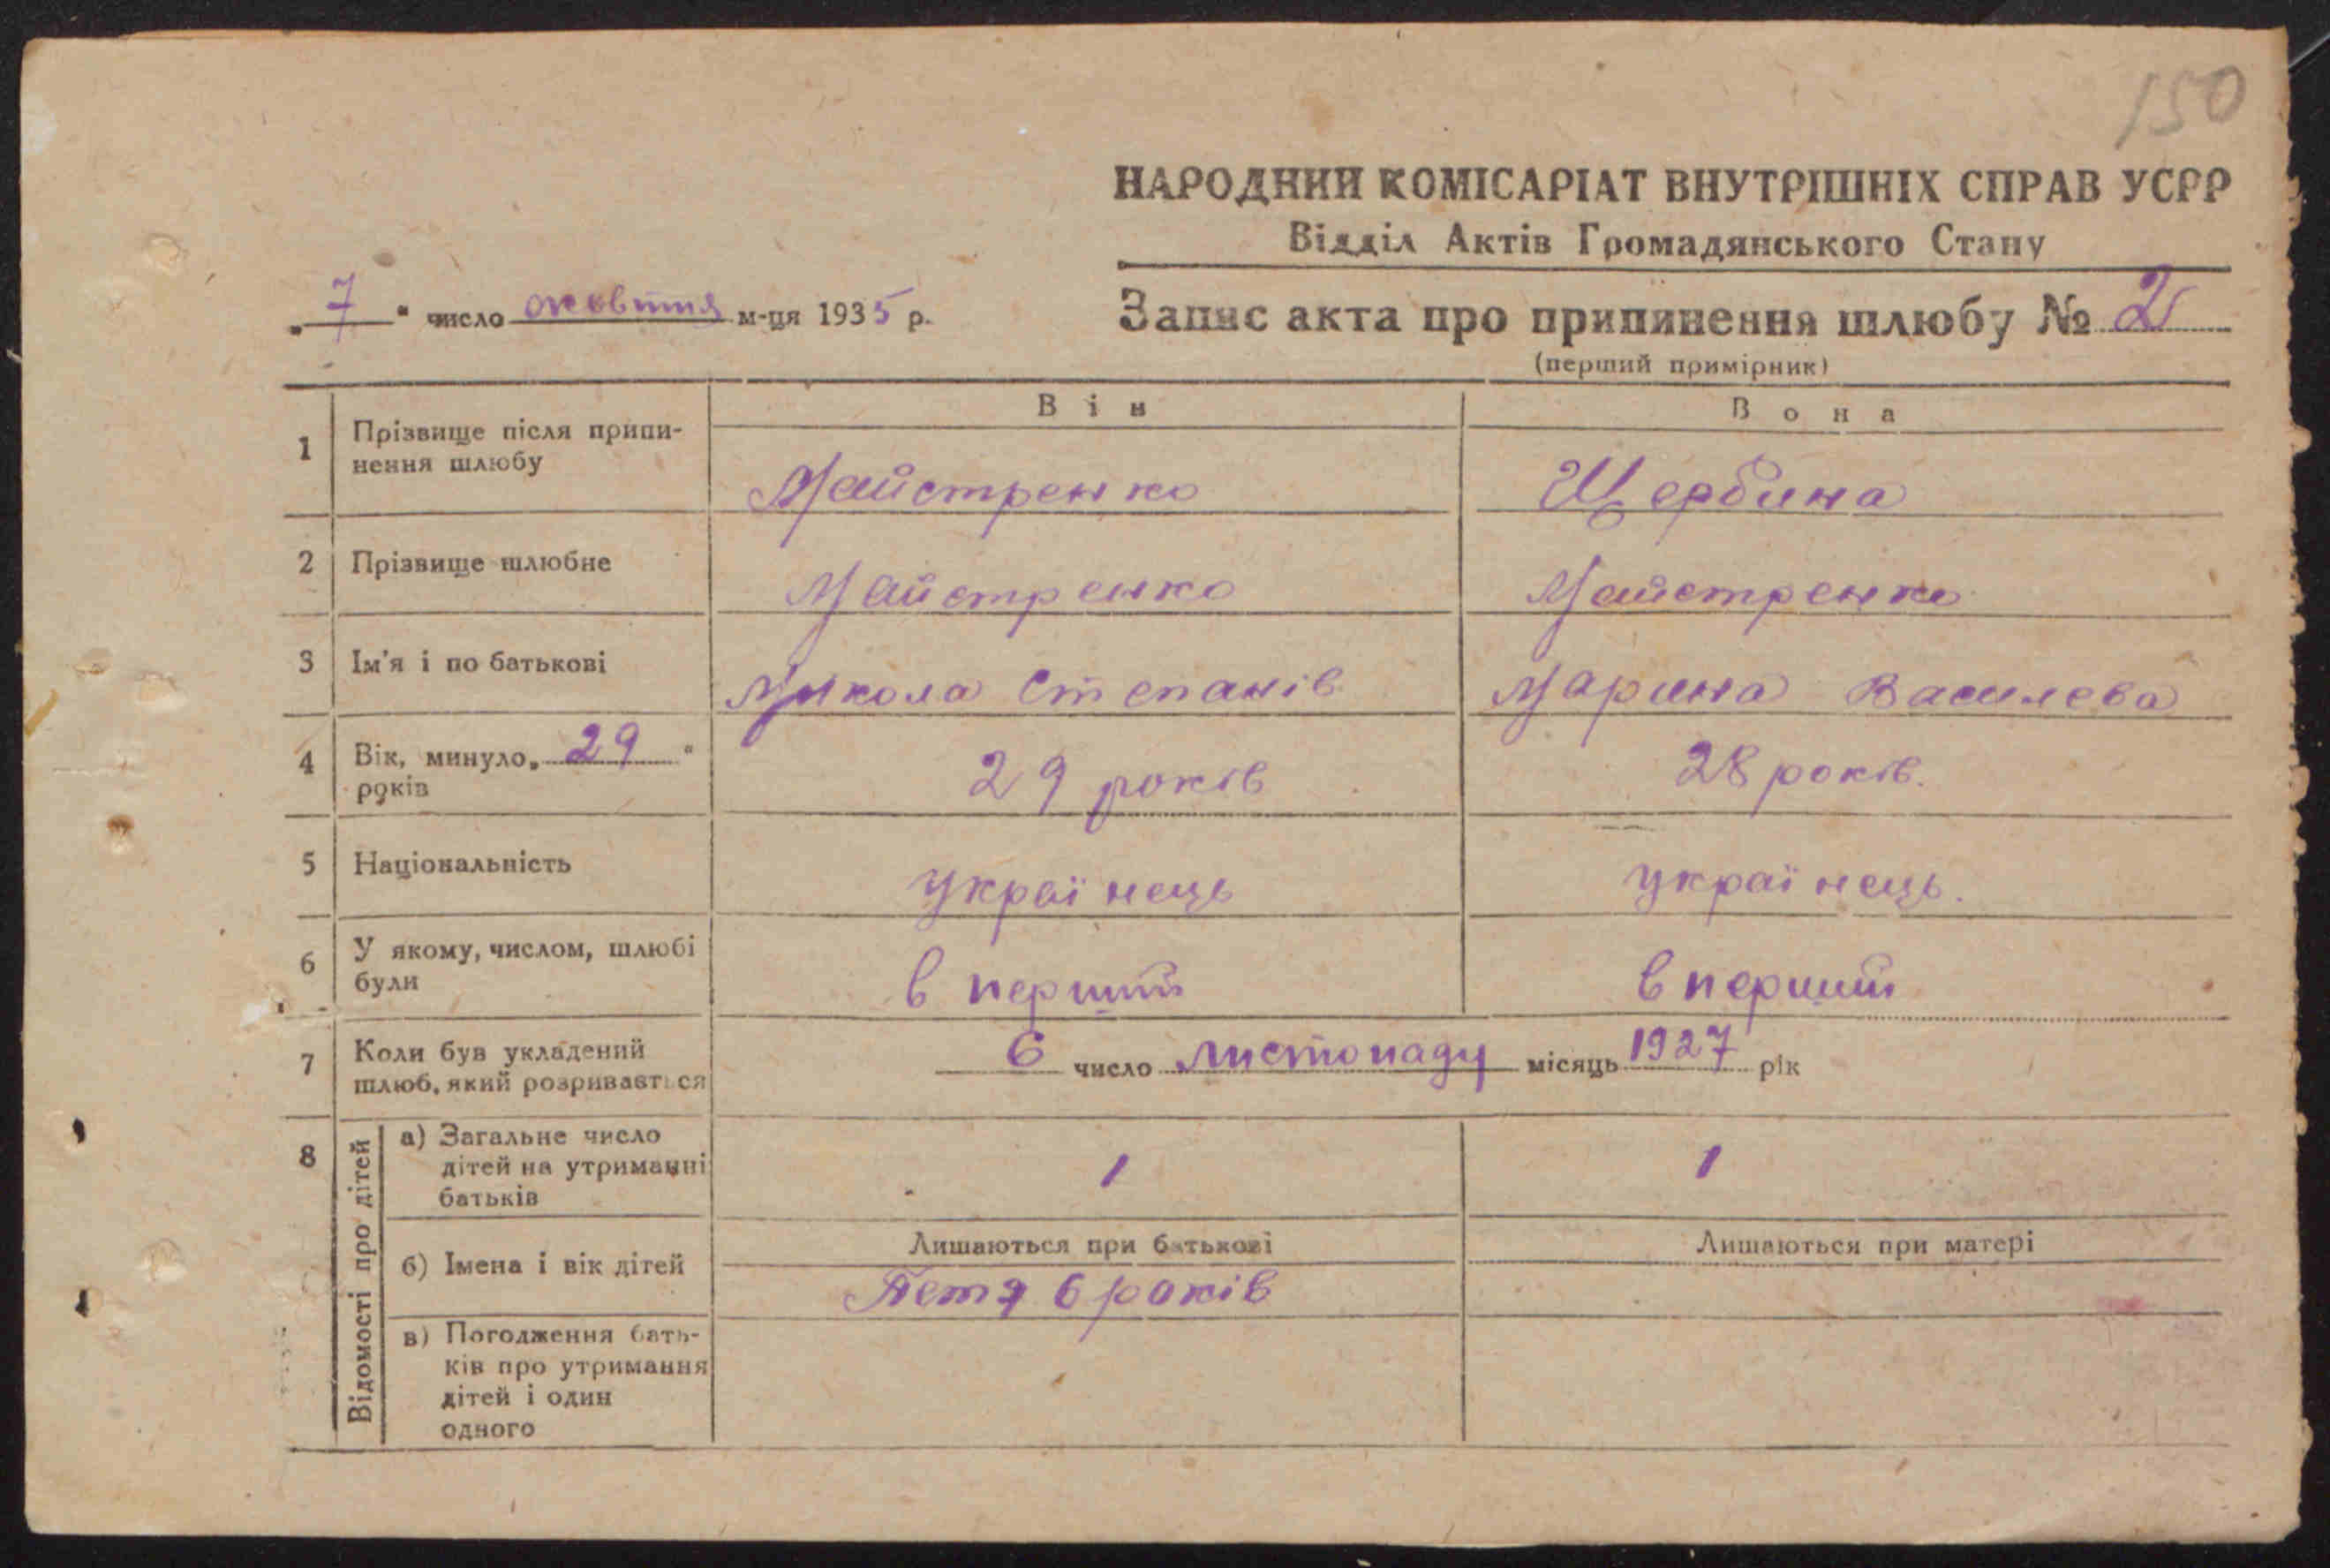 150
НАРОДНИЙ КОМІСАРІАТ ВНУТРІШНІХ СПРАВ УСРР
Відділ Актів Громадянського Стану
„ 7 “ число жовтня м-ця 1935 р.
Запис акта про припинення шлюбу № 2
(перший примірник)
Він Вона
1 Прізвище після припи-
нення шлюбу
Майстренко Щербина
2 Прізвище шлюбне
Майстренко Майстренко
3 Ім'я і по батькові
Микола Степанів Марина Василева
4 Вік, минуло „ 29 “
років
29 років 28 років.
5 Національність
українець українець.
6 У якому, числом, шлюбі
були
в перший в перший
7 Коли був укладений
шлюб, який розривається
6 число листопаду місяць 1927 рік
8 Відомості про дітей
а) Загальне число
дітей на утриманні
батьків
1 1
б) Імена і вік дітей
Лишаються при батькові Лишаються при матері
Петя 6 років
в) Погодження бать-
ків про утримання
дітей і один
одного